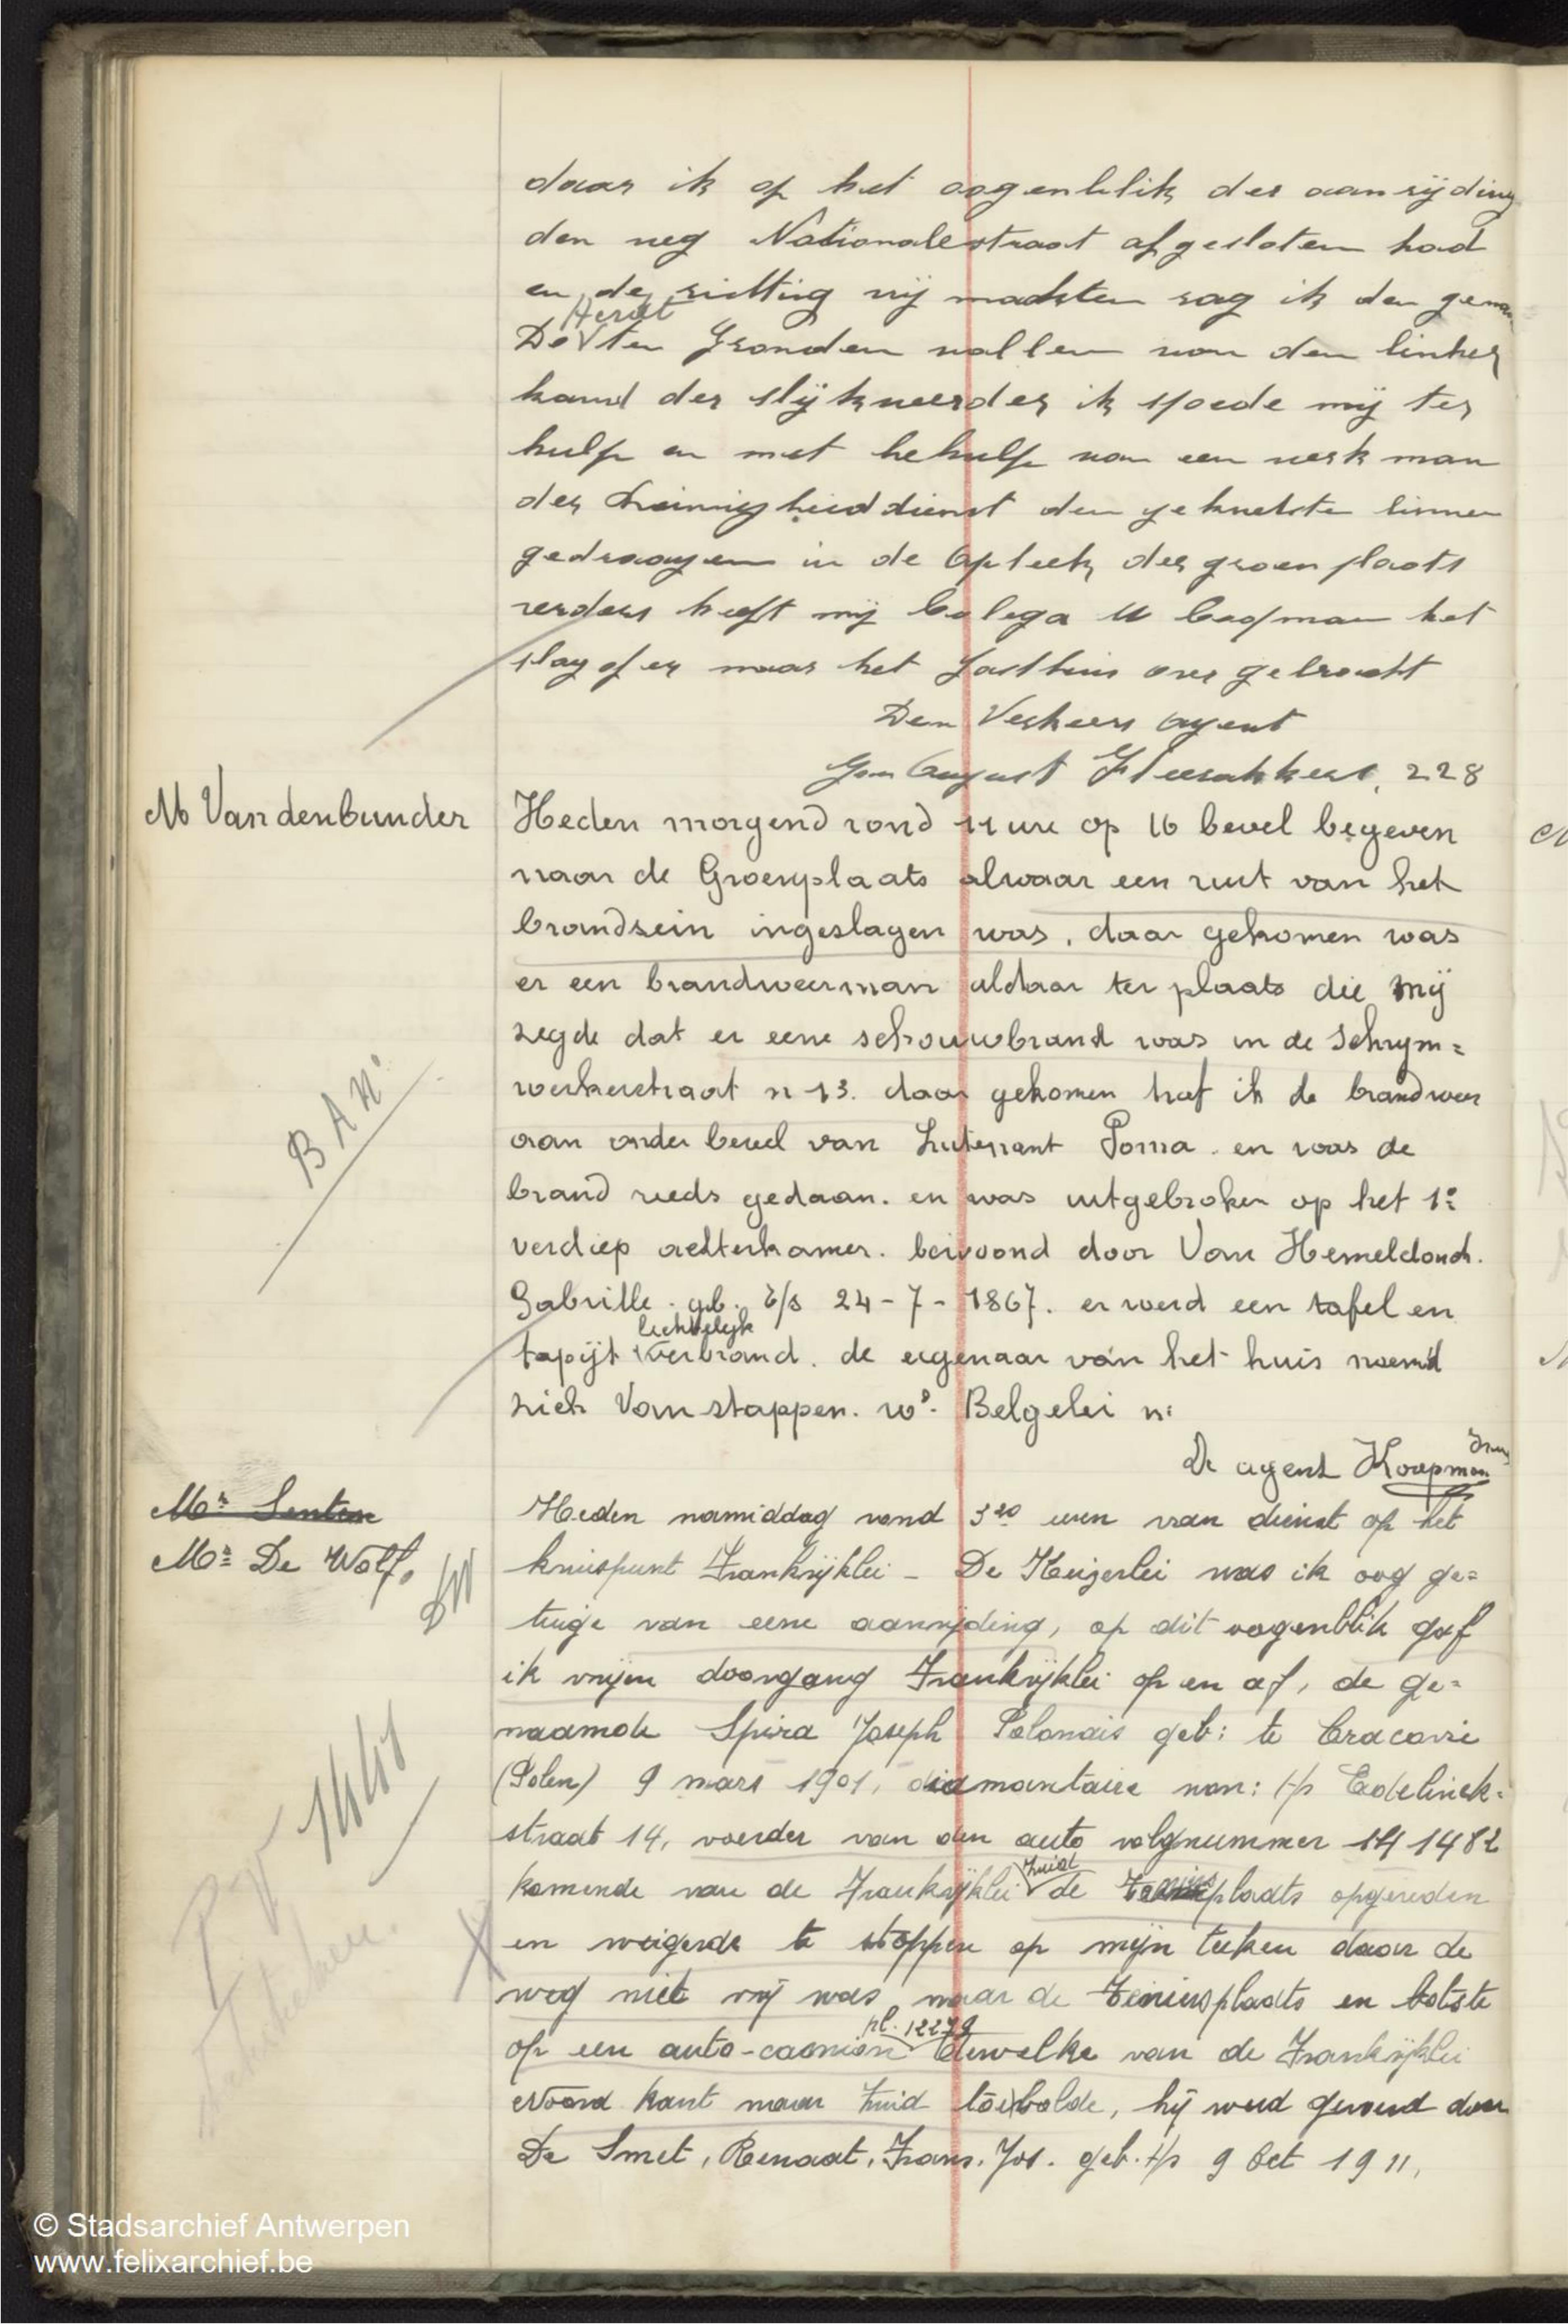 daar ik op het oogenblik der aanrijding
den weg Nationalestraat afgesloten had
en de richting vrij maakten zag ik den gena
Herdt
De ten gronden vallen van den linker
kand der slijkveerder ik spoede mij ter
hulp en met behulp van een werk man
der Reinigheiddienst den gekwetste binnen
gedraagen in de Apteek der groenplaats
verders heeft mij Colega M Coopman het
slagofer naar het Gasthuis over gebracht
Den Verkeers agent
August 228
M Vandenbunder
Heden morgend rond 11 ure op 16 bevel begeven
naar de Groenplaats alwaar een ruit van het
brandsein ingeslagen was, daar gekomen was
er een brandweerman aldaar ter plaats die mij
zegde dat er eene schouwbrand was in de Schrijn=
werkerstraat n 13. daar gekomen trof ik de brandweer
aan onder bevel van Lutenant Poma. en was de
brand reeds gedaan. en was uitgebroken op het 1e
verdiep achterkamer. bewoond door Van Hemeldonck.
Gabrille. geb. t/s 24-7-1867. er werd een tafel en
lichtelijk
tapijt verbrand. de eigenaar van het huis noemd
zich Van stappen. wo. Belgelei n:
BAN°
De agent Koopman
Mr Senten
Mr De Wolf.
Heden namiddag rond 3 20 uren van dienst op het
kruispunt Frankrijklei - De Keijzerlei was ik oog ge=
tuige van eene aanrijding, op dit oogenblik gaf
ik vrijen doorgang Frankrijklei op en af, de ge=
naamde Spira Joseph Polonais geb: te Cracovie
(Polen) 9 mars 1901, diamantaire won: t/s Edelinck=
straat 14, voerder van den auto volgnummer 141482
Zuid
komende van de Frankrijklei de Teniersplaats opgereden
en weigerde te stoppen op mijn teeken daar de
weg niet vrij was naar de Teniersplaats en botste
pl. 12279
op een auto-camion dewelke van de Frankrijklei
Noord kant naar Zuid toe bolde, hij werd gevoerd door
De Smet, Renaat, Frans. Jos. geb. t/s 9 Oct 1911,
PV
© Stadsarchief Antwerpen
www.felixarchief.be